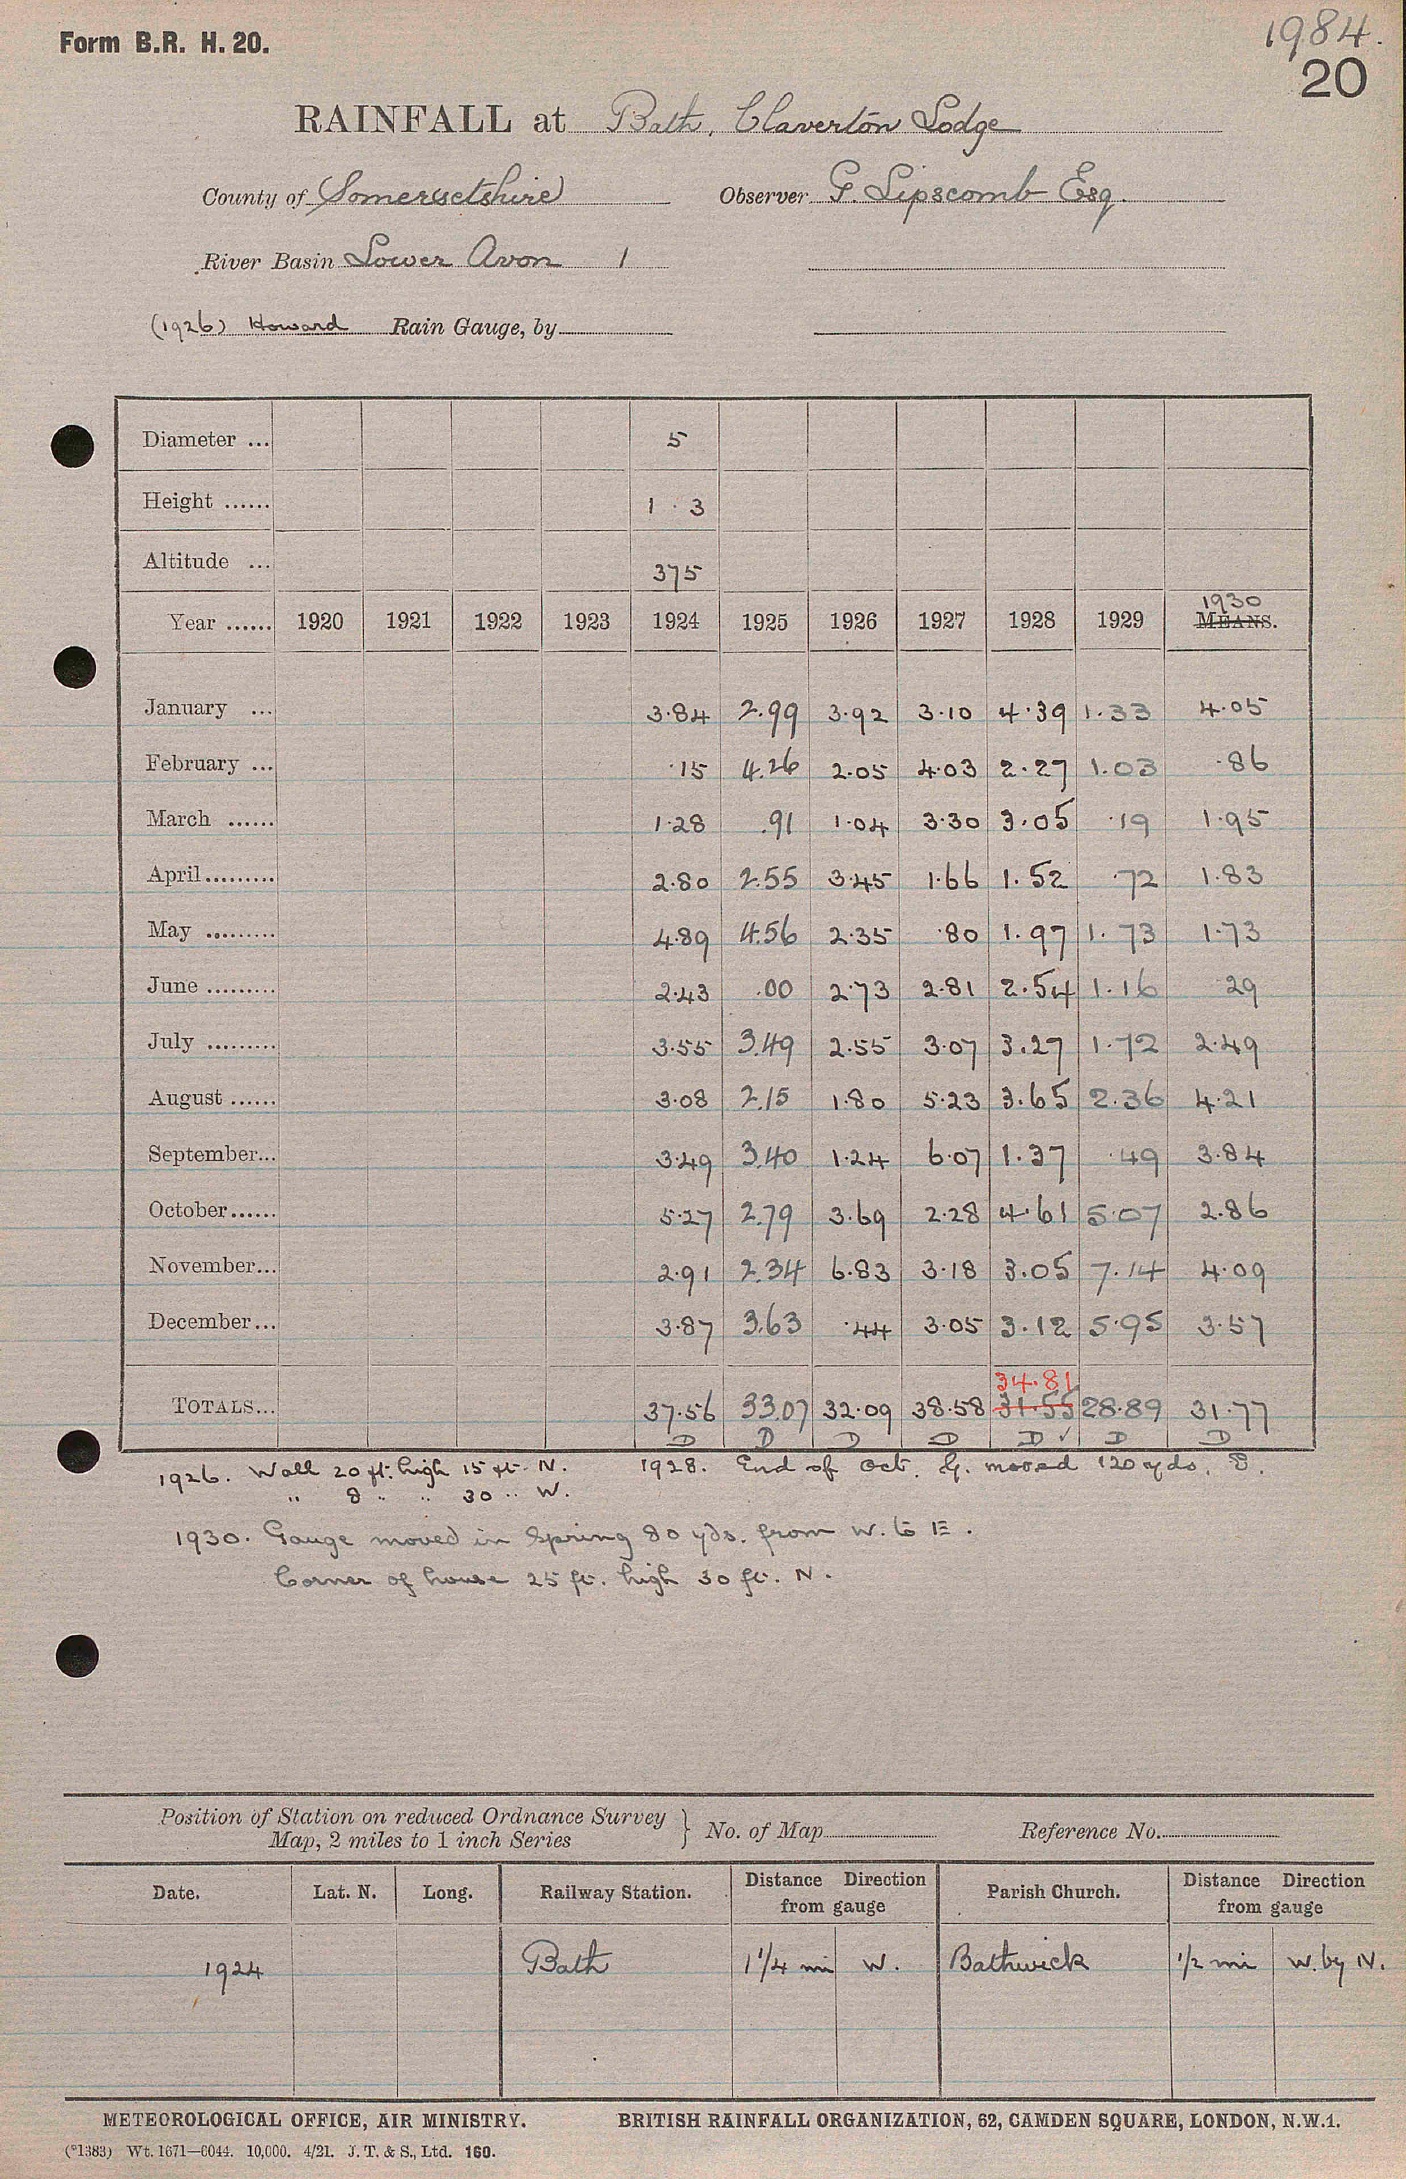 Form B.R. H. 20.
1984.
20
RAINFALL at Bath, Claverton Lodge
County of Somersetshire Observer G. Lipscomb Esq.
River Basin Lower Avon 1
(1926) Howard Rain Gauge, by
Diameter ... 5
Height ...... 1 . 3
Altitude ... 375
1930
Year ...... 1920 1921 1922 1923 1924 1925 1926 1927 1928 1929 MEANS.
January ... 3.84 2.99 3.92 3.10 4.39 1.33 4.05
February ... .15 4.26 2.05 4.03 2.27 1.03 .86
March ...... 1.28 .91 1.04 3.30 3.05 .19 1.95
April......... 2.80 2.55 3.45 1.66 1.52 .72 1.83
May ......... 4.89 4.56 2.35 .80 1.97 1.73 1.73
June ......... 2.43 .00 2.73 2.81 2.54 1.16 .29
July ......... 3.55 3.49 2.55 3.07 3.27 1.72 2.49
August ...... 3.08 2.15 1.80 5.23 3.65 2.36 4.21
September... 3.49 3.40 1.24 6.07 1.37 .49 3.84
October...... 5.27 2.79 3.69 2.28 4.61 5.07 2.86
November... 2.91 2.34 6.83 3.18 3.05 7.14 4.09
December... 3.87 3.63 .44 3.05 3.12 5.95 3.57
34.81
TOTALS... 37.56 33.07 32.09 38.58 31.55 28.89 31.77
D D D D D ✓ D D
1926. Wall 20 ft. high 15 ft. N. 1928. End of Oct. G. moved 120 yds.
" 8 " " 30 " W.
1930. Gauge moved in Spring 80 yds. from W. to E.
Corner of house 25 ft. high 30 ft. N.
Position of Station on reduced Ordnance Survey
Map, 2 miles to 1 inch Series } No. of Map Reference No.
Date. Lat. N. Long. Railway Station. Distance Direction from gauge Parish Church. Distance Direction from gauge
1924 Bath 1 1/4 mi W. Bathwick 1/2 mi W. by N.
METEOROLOGICAL OFFICE, AIR MINISTRY. BRITISH RAINFALL ORGANIZATION, 62, CAMDEN SQUARE, LONDON, N.W.1.
(*1383) Wt. 1671—6044. 10,000. 4/21. J. T. & S., Ltd. 160.